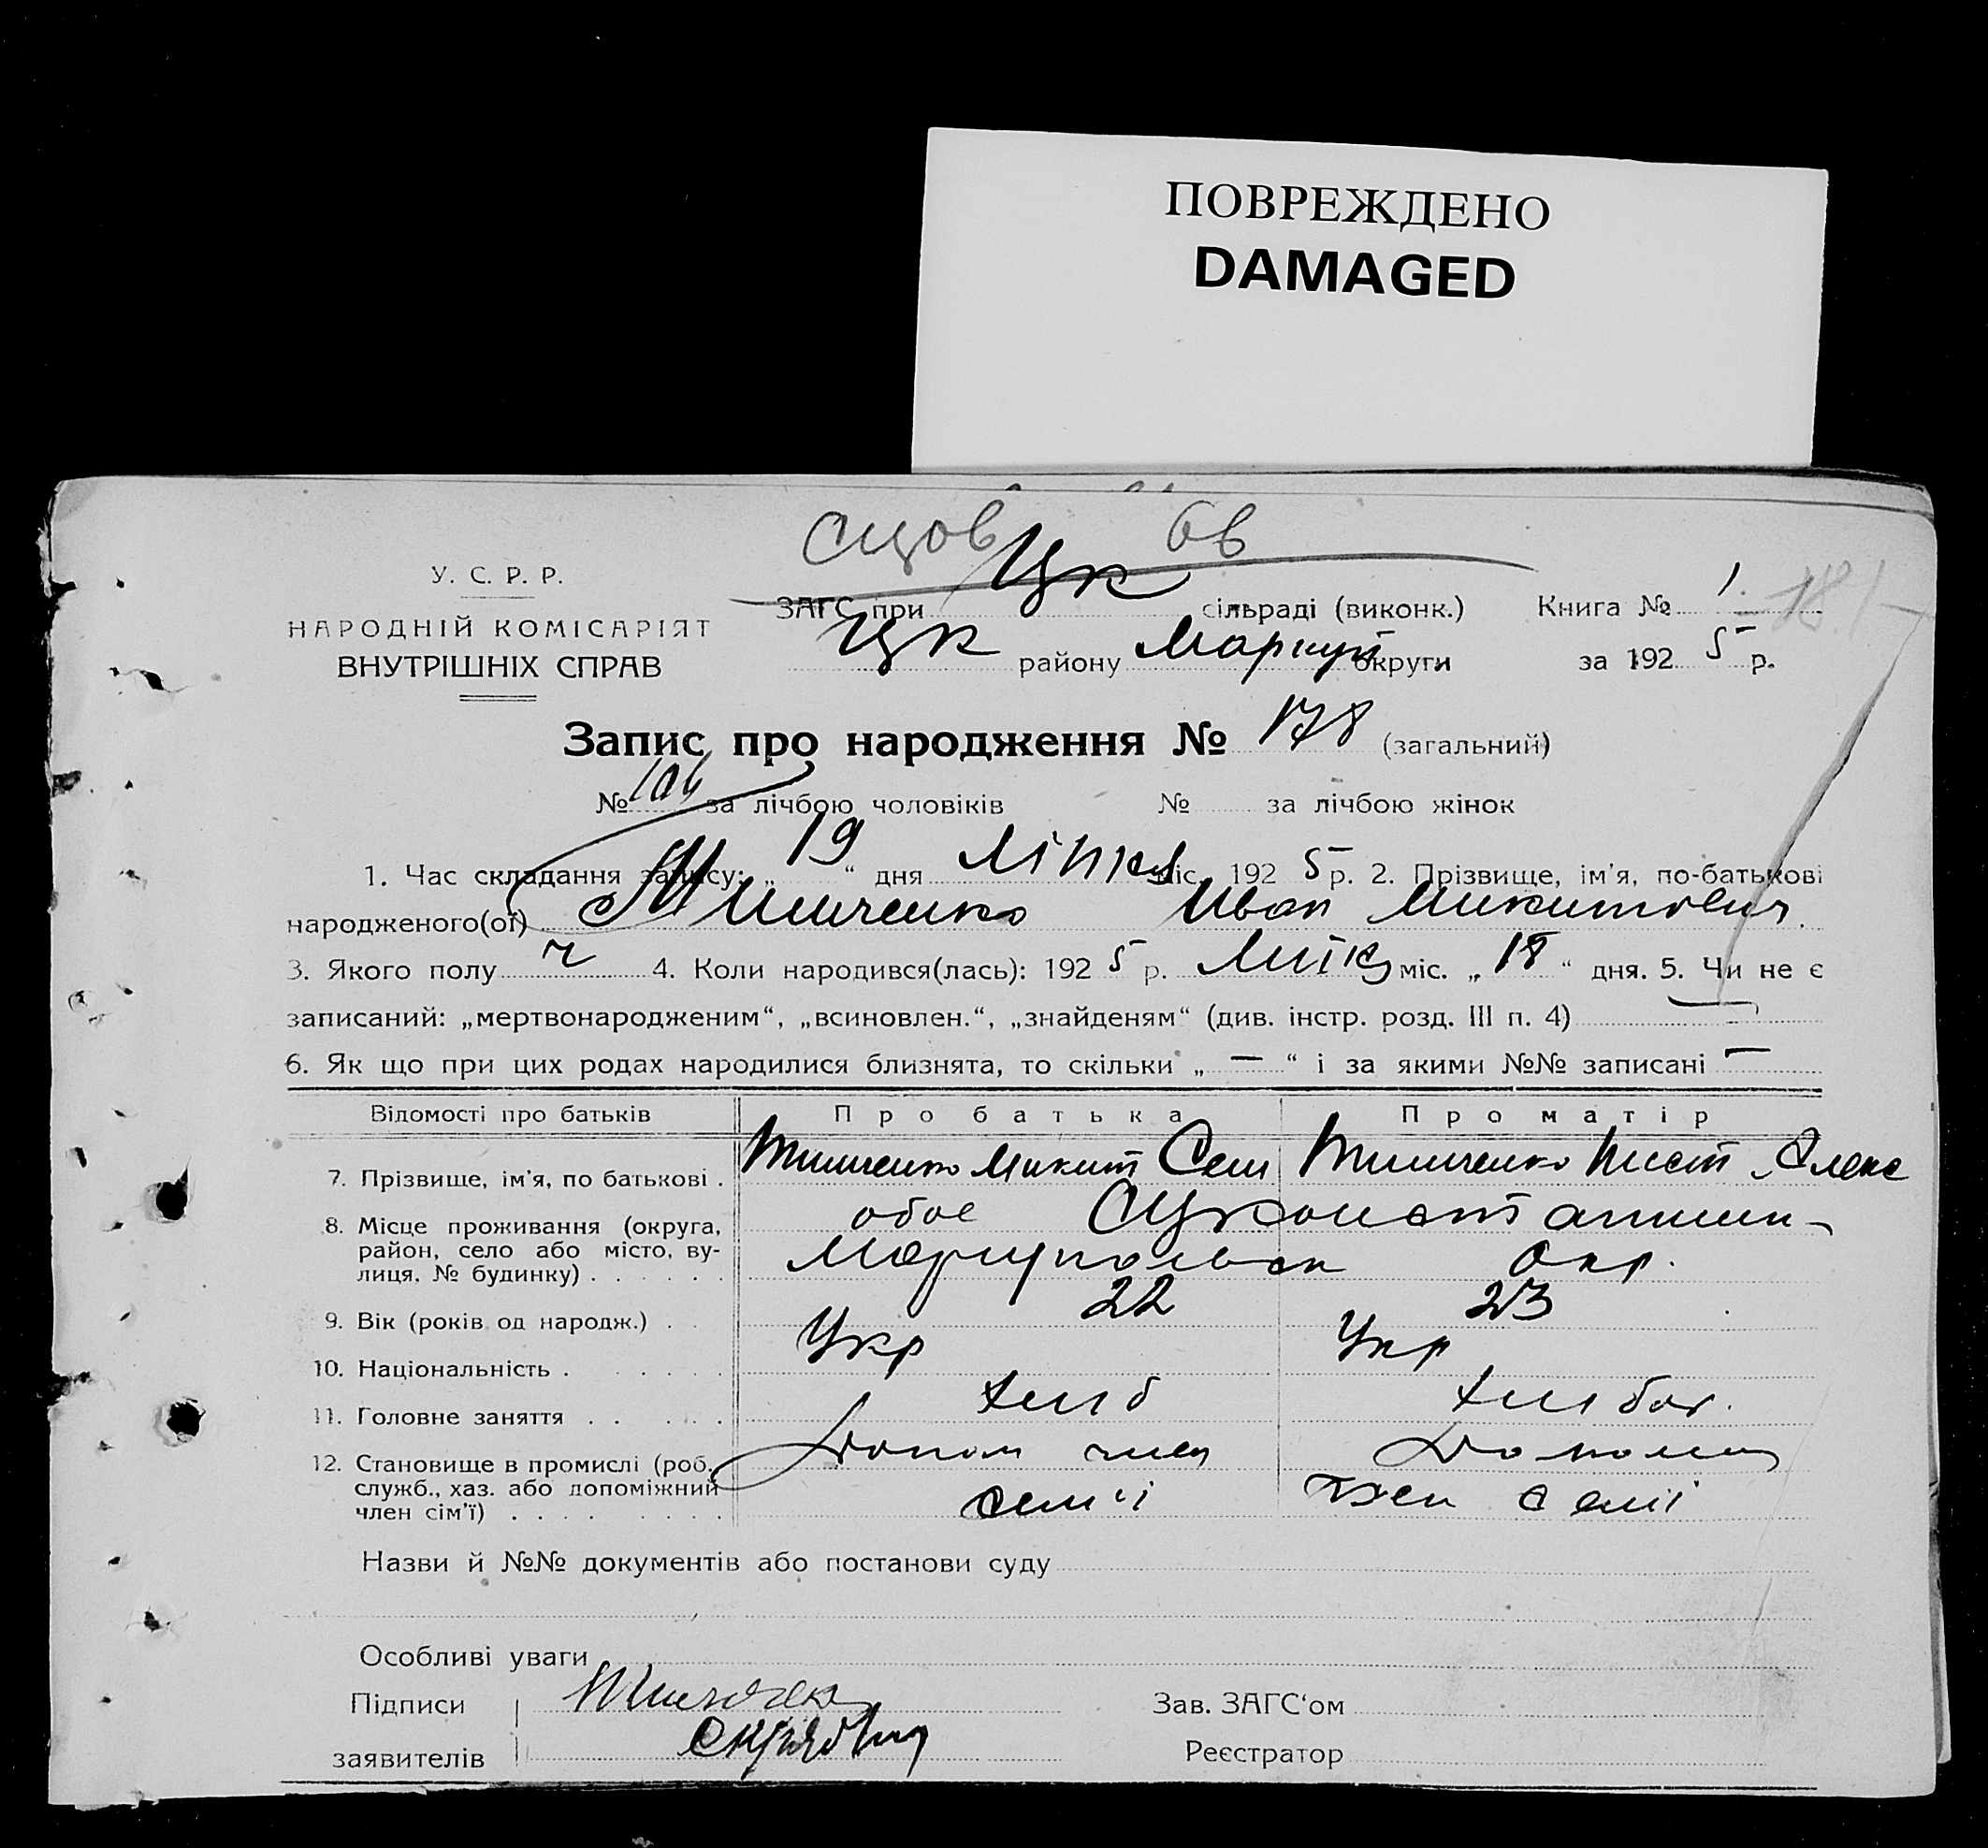 ПОВРЕЖДЕНО
DAMAGED
У. С. Р. Р.
НАРОДНІЙ КОМІСАРІЯТ
ВНУТРІШНІХ СПРАВ
ЗАГС при Цк сільраді (виконк.) Книга № 1
Цк району Маріуп округи за 1925 р.
Запис про народження № 178 (загальний)
№ за лічбою чоловіків № за лічбою жінок
1. Час складання запису: „ 19 “ дня міс. 1925 р. 2. Прізвище, ім'я, по-батькові
народженого(ої) Тимченко Иван Микитович.
3. Якого полу ч 4. Коли народився(лась): 1925 р. міс. „ 18 “ дня. 5. Чи не є
записаний: „мертвонародженим“, „всиновлен.“, „знайденям“ (див. інстр. розд. III п. 4) —
6. Як що при цих родах народилися близнята, то скільки „ — “ і за якими №№ записані —
Відомості про батьків Про батька Про матір
7. Прізвище, ім'я, по батькові . Тимченко Микит Сем Тимченко Алекс
8. Місце проживання (округа, обое
район, село або місто, ву- Маріупольск Окр.
лиця, № будинку) . . . . . .
9. Вік (років од народж.) . . 22 23
10. Національність . . . . . . Укр Укр
11. Головне заняття . . . . . Хліб Хлібор.
12. Становище в промислі (роб., Допом член Допом
служб., хаз. або допоміжний семьі член семіі
член сім'ї) . . . . . . . .
Назви й №№ документів або постанови суду
Особливі уваги
Підписи Зав. ЗАГС'ом
заявителів Реєстратор